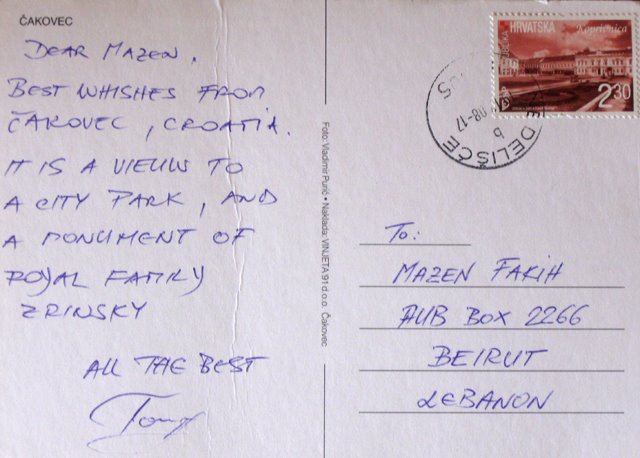 ČAKOVEC
DEAR MAZEN,
BEST WHISHES FROM
ČAKOVEC, CROATIA.
IT IS A VIEUW TO
A CITY PARK, AND
A MONUMENT OF
ROYAL FAMILY
ZRINSKY
ALL THE BEST
Tomy
Foto: Vladimir Purić • Naklada: VINJETA'91 d.o.o. Čakovec
REPUBLIKA
HRVATSKA
Koprivnica
2.30
DELIŠĆE
08-17
b
To:
MAZEN FAKIH
AUB BOX 2266
BEIRUT
LEBANON